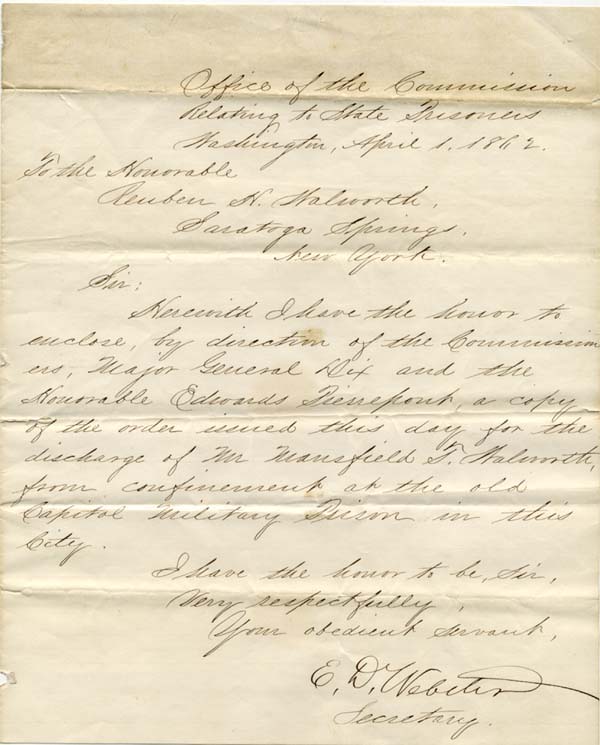 Office of the Commission
Relating to State Prisoners
Washington, April 1. 1862.
To the Honorable
Reuben H. Walworth,
Saratoga Springs,
New York.
Sir:
Herewith I have the honor to
enclose, by direction of the Commission
ers, Major General Dix and the
Honorable Edwards Pierrepont, a copy
of the order issued this day for the
discharge of Mr Mansfield T. Walworth,
from confinement at the old
Capitol Military Prison in this
City.
I have the honor to be, Sir,
Very respectfully,
Your obedient servant,
E. D. Webster
Secretary.